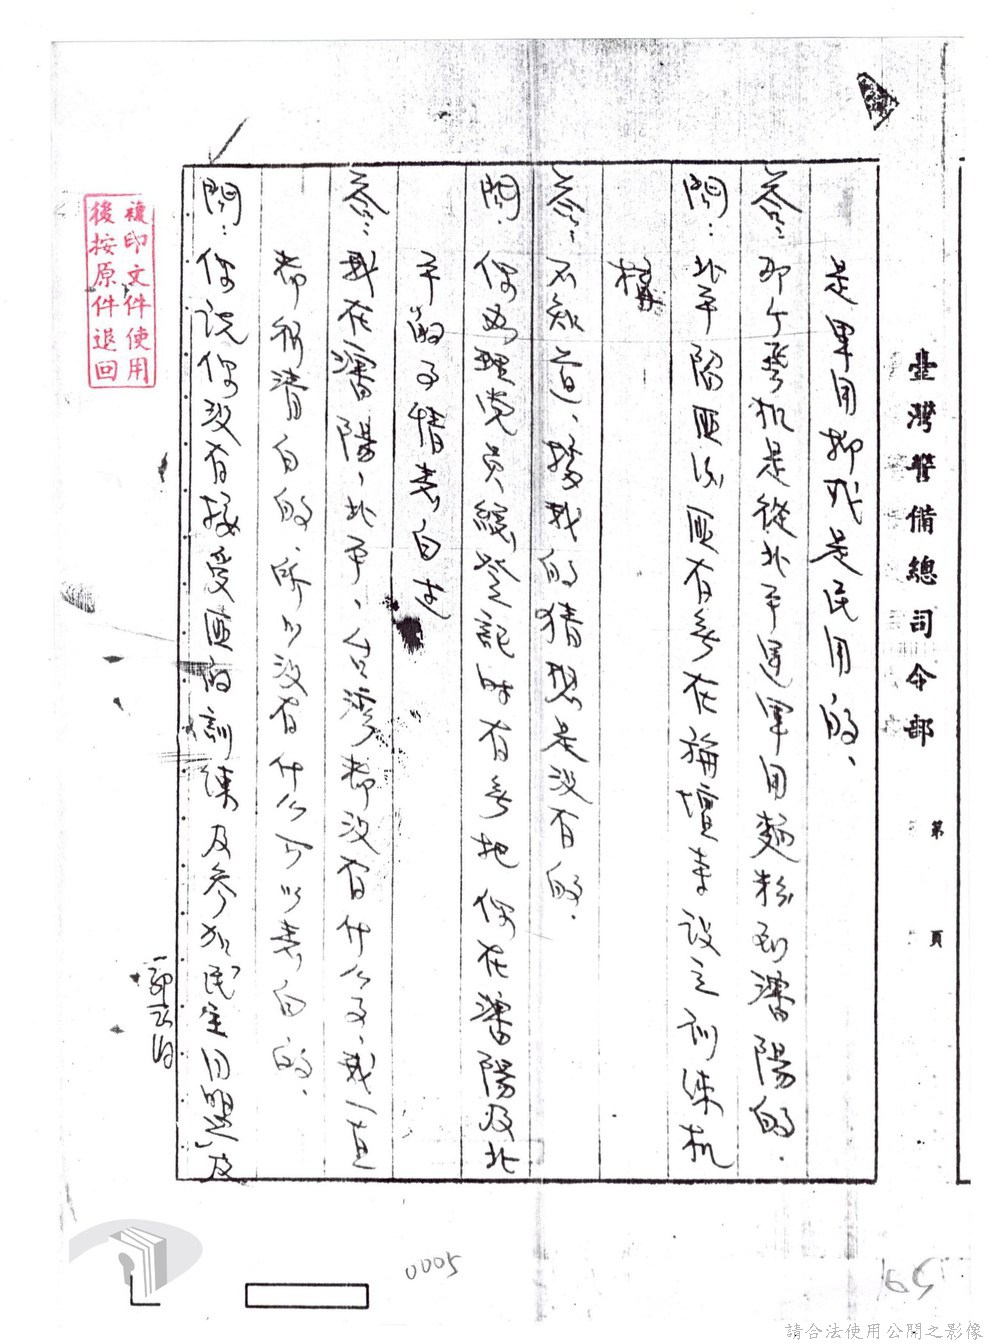 臺灣警備總司令部
第 頁
是軍用抑或是民用的、
答：那个飛机是從北平運軍用麵粉到瀋陽的．
問：北平陷匪後匪有無在旃壇寺設立訓练机
構
答：不知道、據我的猜想是没有的．
問：你办理党員總登記时有無把你在瀋陽及北
平的事情表白过
答：我在瀋陽、北平、台湾都没有什么事、我一直
都很清白的、所以没有什么可以表白的．
問：你說你没有接受匪的訓練及參加民主同盟、及
複印文件使用
後按原件退回
0005
請合法使用公開之影像